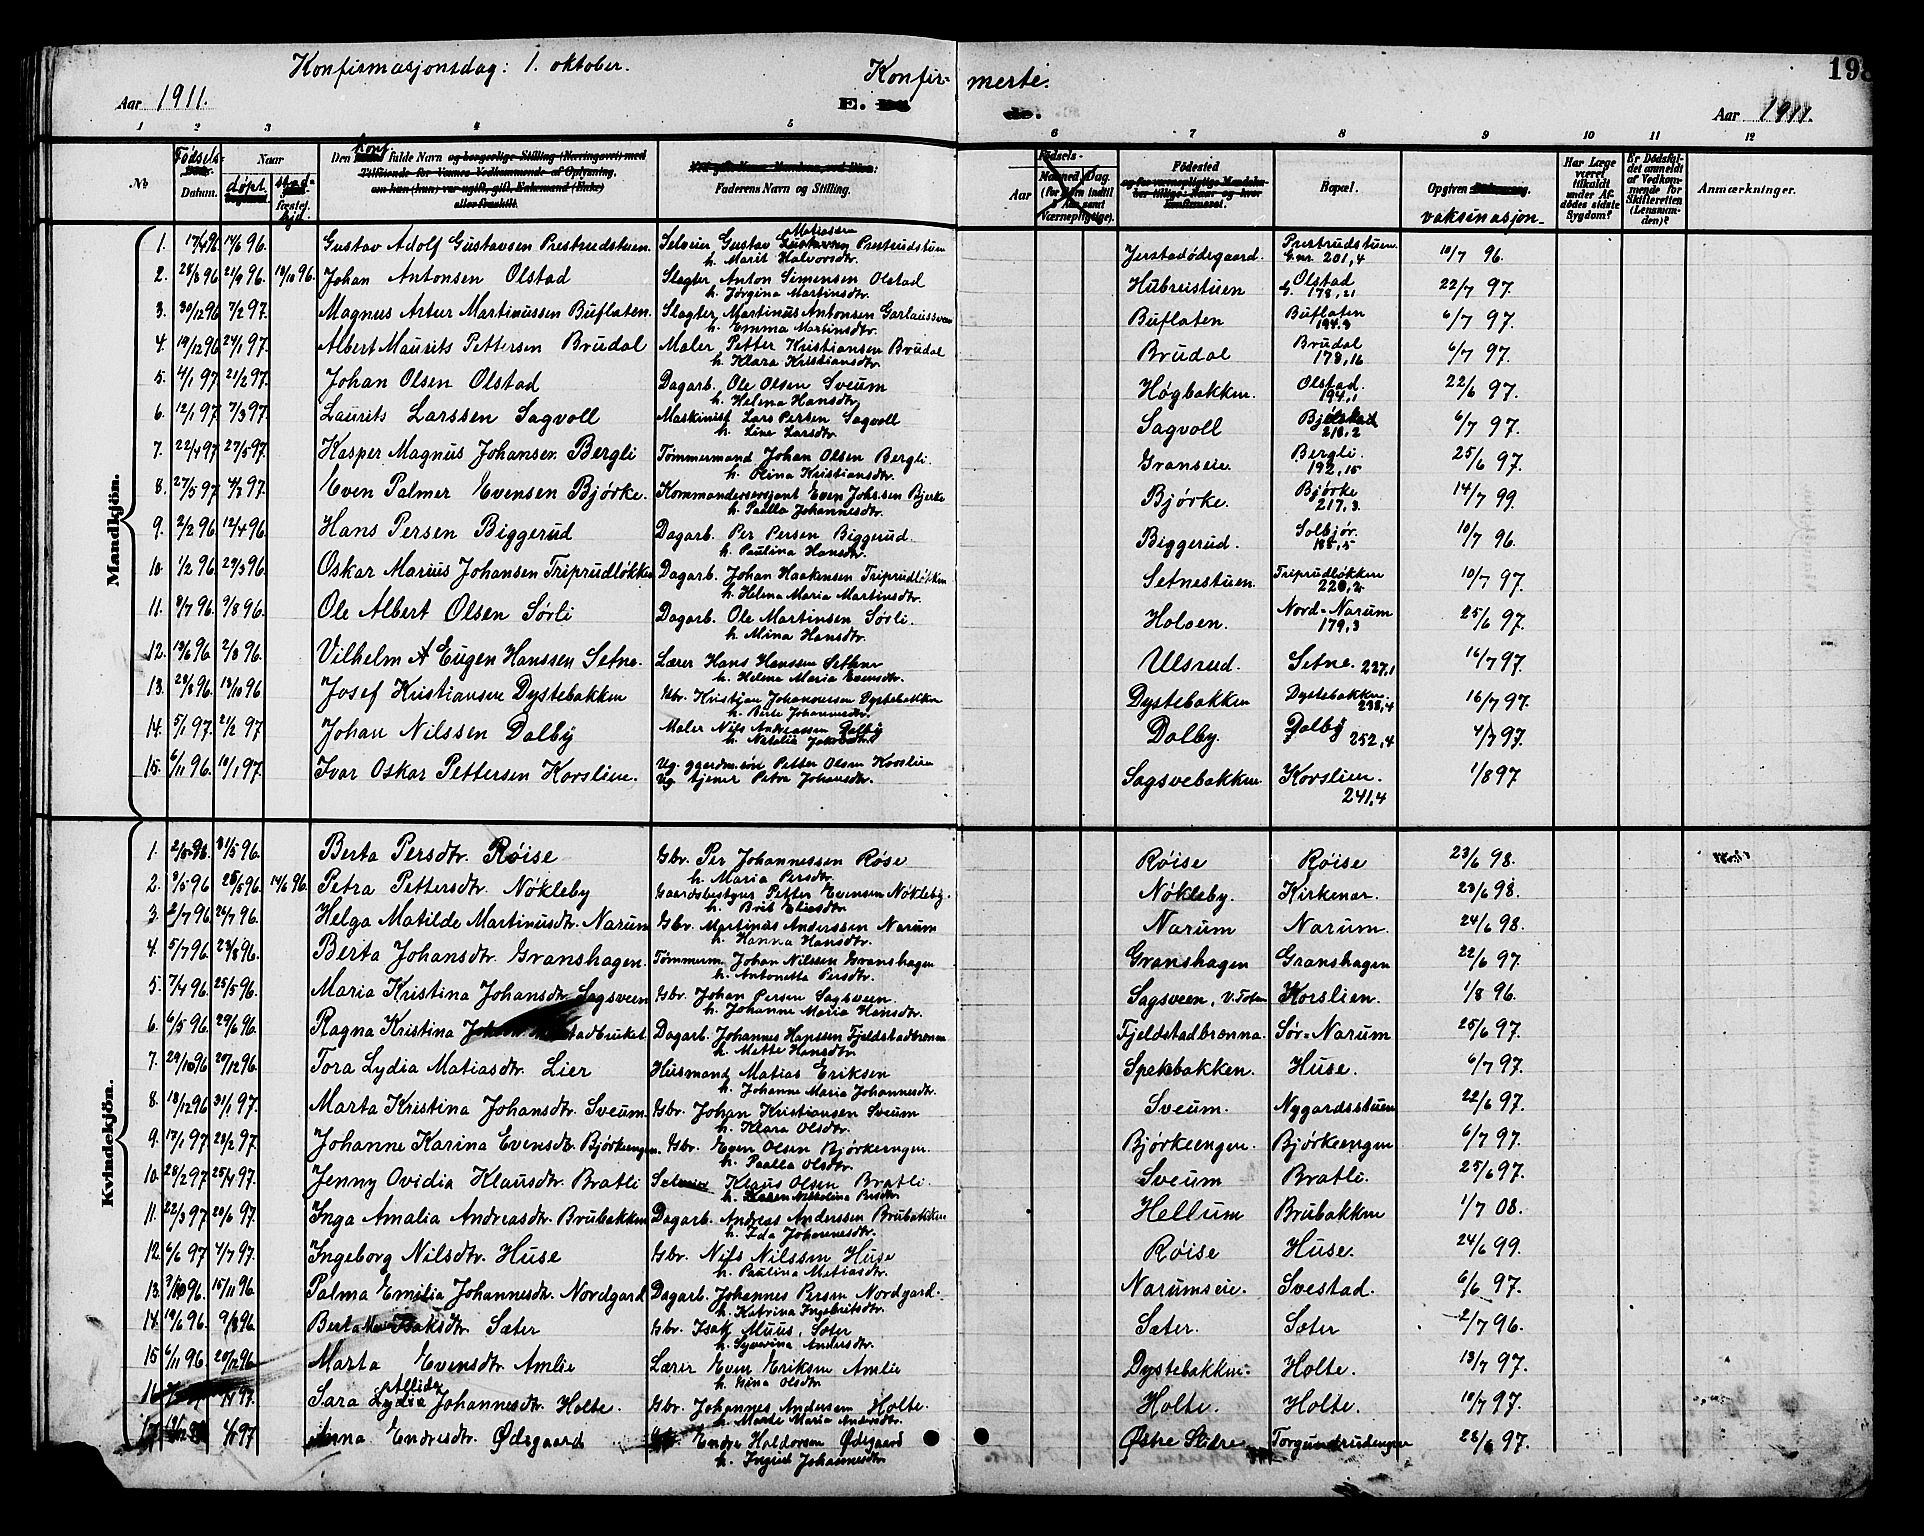 Konfirmasjonsdag: 1. oktober.
Konfir- merte.
198
Aar 1911.
E.
do.
Aar 1911.
1 2 3 4 5 6 7 8 9 10 11 12
No
Fødsels- Datum.
Naar døpt.
Den konf. fulde Navn og borgerlige Stilling (Næringsvei) med
Tilföiende for Vennes Vedkommende af Oplysning,
om han (hun) var ugift, gift, Enkemand (Enke)
eller fraskilt.
Faderens Navn og Stilling.
Aar
Fødsels-
Maaned, Dag.
(for Børn indtil
5 Aar samt
Værnepligtige).
Fødested
Bopæl.
Opgiven vaksinasjon
Har Læge været tilkaldt under Afdødes sidste Sygdom?
Er Dødsfaldet anmeldt af Vedkommende for Skifteretten (Lensmanden)?
Anmærkninger.
Mandkjøn.
1. 17/4 96 14/6 96. Gustav Adolf Gustavsen Prestrudstuen. Selveier Gustav Matiassen Prestrudstuen h. Marit Halvorsdtr. Jerstadødegaard. Prestrudstuen. G.nr. 201,4 10/7 96.
2. 28/8 96 21/9 96. 18/10 96. Johan Antonsen Olstad Slagter Anton Simensen Olstad h. Jørgina Martinsdtr. Hubreistuen Olstad G. 178,21 22/7 97.
3. 30/12 96 7/2 97. Magnus Artur Martinussen Buflaten. Slagter Martinus Antonsen Garlaussveen h. Emma Martinsdtr. Buflaten Buflaten 194.3 6/7 97.
4. 19/12 96 24/1 97. Albert Maurits Pettersen Brudal Maler Petter Kristiansen Brudal h. Klara Kristiansdtr. Brudal Brudal 178,16 6/7 97.
5. 4/1 97 21/2 97. Johan Olsen Olstad Dagarb. Ole Olsen Sveum h. Helena Hansdtr. Høgbakken. Olstad. 194,1 22/6 97.
6. 12/1 97 7/3 97. Laurits Larssen Sagvoll Maskinist Lars Persen Sagvoll h. Line Larsdtr. Sagvoll Bjølstad 218,2 6/7 97.
7. 22/4 97 27/5 97. Kasper Magnus Johansen Bergli Tømmermand Johan Olsen Bergli. h. Olina Kristiansdtr. Granseie Bergli. 192,15 25/6 97.
8. 27/5 97 4/7 97. Even Palmer Evensen Bjørke. Kommandersersjant Even Johssen Bjerke h. Paalla Johannesdtr. Bjørke. Bjørke 217,3. 14/7 99.
9. 2/2 96 12/4 96. Hans Persen Biggerud Dagarb. Per Persen Biggerud. h. Paulina Hansdtr. Biggerud. Solbjør. 188,5 10/7 96.
10. 1/2 96. 29/3 96. Oskar Marius Johansen Triprudløkken Dagarb. Johan Haakensen Triprudløkken h. Helena Maria Martinsdtr. Setnestuen. Triprudløkken 220,2 10/7 97.
11. 8/7 96. 9/8 96. Ole Albert Olsen Sørli Dagarb. Ole Martinsen Sørli. h. Mina Hansdtr. Holoen. Nord-Narum 179,3 25/6 97.
12. 13/6 96. 2/8 96. Vilhelm A Eugen Hanssen Setne. Lærer Hans Hanssen Setne h. Helena Maria Evensdtr. Ulsrud. Setne. 227,1 16/7 97.
13. 23/8 96. 18/10 96 Josef Kristiansen Dystebakken Gbr. Kristjan Johannessen Dystebakken h. Berte Johannesdtr. Dystebakken Dystebakken. 238,4 16/7 97.
14. 5/1 97. 21/2 97 Johan Nilssen Dalby Maler Nils Andreassen Dalby h. Natalia Jakobsdtr. Dalby. Dalby 252,4 4/7 97.
15. 6/11 96. 10/1 97. Ivar Oskar Pettersen Korslien. Ug. ggerdm.søn Petter Olsen Korslien Ug. tjener Petra Johansdtr. Sagsvebakken Korslien. 241,4 1/8 97
Kvindekjøn.
1. 31/5 96. Berta Persdtr. Røise Gbr. Per Johannessen Røse h. Maria Persdtr. Røise Røise 23/6 98.
2. 3/5 96 25/5 96. 14/6 96. Petra Pettersdtr. Nøkleby Gaardsbestyrer Petter Evensen Nøkleby. h. Brit Eliasdtr. Nøkleby. Kirkenær. 23/6 98.
3. 2/7 96 26/7 96. Helga Matilde Martinusdtr. Narum Gbr. Martinus Anderssen Narum h. Hanna Hansdtr. Narum Narum. 24/6 98.
4. 5/7 96. 23/8 96. Berta Johansdtr. Granshagen. Tømmerm. Johan Nilssen Granshagen h. Antonetta Persdtr. Granshagen Granshagen 22/6 97.
5. 7/4 96. 25/5 96. Maria Kristina Johansdtr. Sagsveen Gbr. Johan Persen Sagsveen. h. Johanne Maria Hansdtr. Sagsveen, V. Toten Korslien. 1/8 96.
6. 6/5 96. 29/6 96. Ragna Kristina Dagarb. Johannes Hanssen Fjeldstadbrænna h. Mette Hansdtr. Fjeldstadbrænna. Sør-Narum 25/6 97.
7. 29/10 96 20/12 96. Tora Lydia Matiasdtr. Lier Husmand Matias Eriksen h. Johanne Maria Johannesdtr. Spekebakken. Huse. 6/7 97.
8. 18/12 96 31/1 97. Marta Kristina Johansdtr. Sveum. Gbr. Johan Kristiansen Sveum h. Klara Olsdtr. Sveum. Nygardsstuen 22/6 97.
9. 17/1 97 28/2 97. Johanne Karina Evensdtr. Bjørkeengen. Gbr. Even Olsen Bjørkeengen. h. Paalla Olsdtr. Bjørkeengen. Bjørkeengen 6/7 97.
10. 28/2 97 25/4 97. Jenny Ovidia Klausdtr. Bratli Selveier Klaus Olsen Bratli. h. Karen Nikolina Persdtr. Sveum Bratli. 25/6 97.
11. 22/3 97 20/6 97. Inga Amalia Andreasdtr. Brubakken Dagarb. Andreas Anderssen Brubakken h. Ida Johannesdtr. Hellum Brubakken 1/7 08.
12. 6/6 97 4/7 97. Ingeborg Nilsdtr. Huse Gbr. Nils Nilssen Huse h. Paulina Matiasdtr. Røise Huse. 24/6 99.
13. 9/10 96. 15/11 96. Palma Emilia Johannesdtr. Nordgard Dagarb. Johannes Persen Nordgard. h. Katrina Ingebritsdtr. Narumseie. Svestad. 6/6 97.
14. 19/6 96. 9/8 96 Berta Isaksdtr Sæter Gbr. Isak Muus, Sæter h. Syverina Andersdtr. Sæter. Sæter 2/7 96.
15. 6/11 96 20/12 96 Marta Evensdtr Amlie Lærer Even Eriksen Amlie h. Gina Olsdtr. Dystebakken. Holte. 13/7 97.
16. Sara Lydia Johannesdtr. Holte. Gbr. Johannes Andersen Holte. h. Marte Maria Andersdtr. Holte. Holte. 10/7 97.
17. Anna Endresdtr. Ødegaard Endre Haldorsen Ødegaard h. Ingrid Johannesdtr Østre Slidre Torgundrudengen 28/6 97.